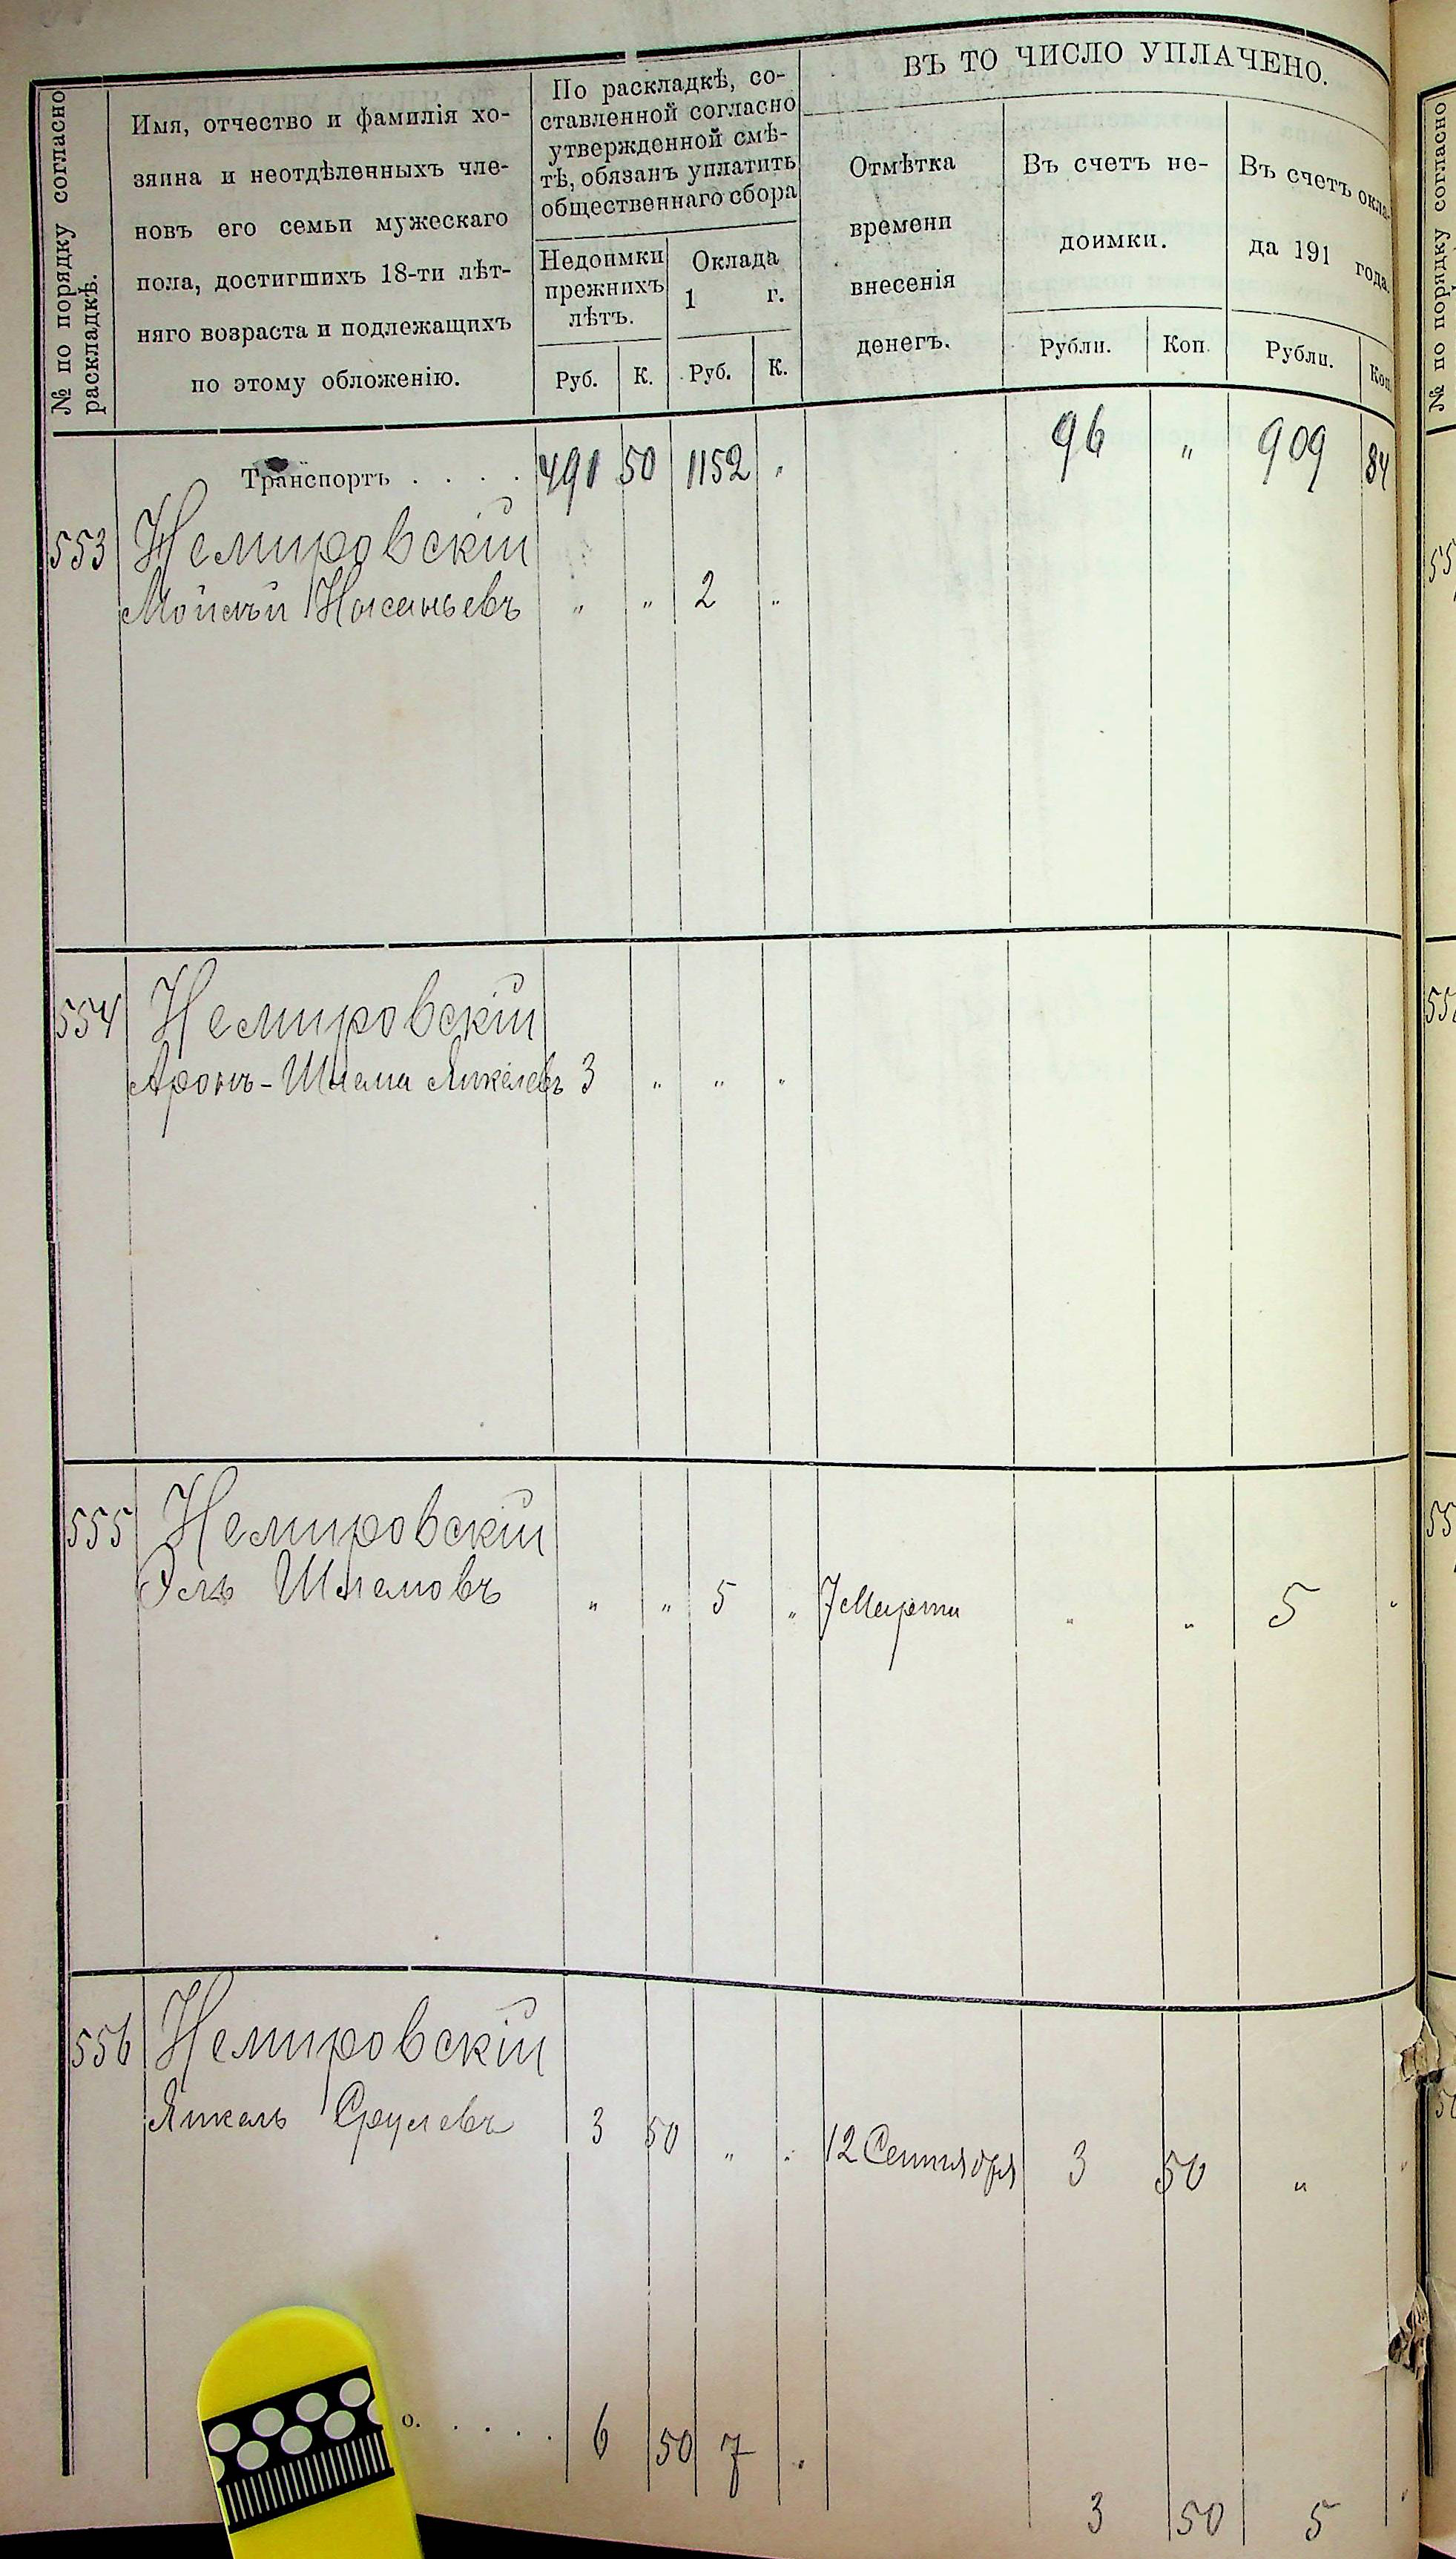 № по порядку согласно
раскладкѣ.
Имя, отчество и фамилія хо-
зяина и неотдѣленныхъ чле-
новъ его семьи мужескаго
пола, достигшихъ 18-ти лѣт-
няго возраста и подлежащихъ
по этому обложенію.
По раскладкѣ, со-
ставленной согласно
утвержденной смѣ-
тѣ, обязанъ уплатить
общественнаго сбора
Недоимки
прежнихъ
лѣтъ.
Оклада
1 г.
Руб. К. Руб. К.
ВЪ ТО ЧИСЛО УПЛАЧЕНО.
Отмѣтка
времени
внесенія
денегъ.
Въ счетъ не-
доимки.
Рубли. Коп.
Въ счетъ окла-
да 191 года.
Рубли. Коп.
Транспортъ . . . . 491 50 1152 „ 96 „ 909 84
553 Немировскій
Мойсѣй „ „ 2 „
554 Немировскій
Аронъ-Шлема Янкелевъ 3 „ „ „
555 Немировскій
Эль Шлемовъ „ „ 5 „ 7 Марта „ „ 5 „
556 Немировскій
Янкель Срулевъ 3 50 „ „ 12 Сентября 3 50 „ „
о. . . . . 6 50 7 „
3 50 5 „
№ по порядку согласно